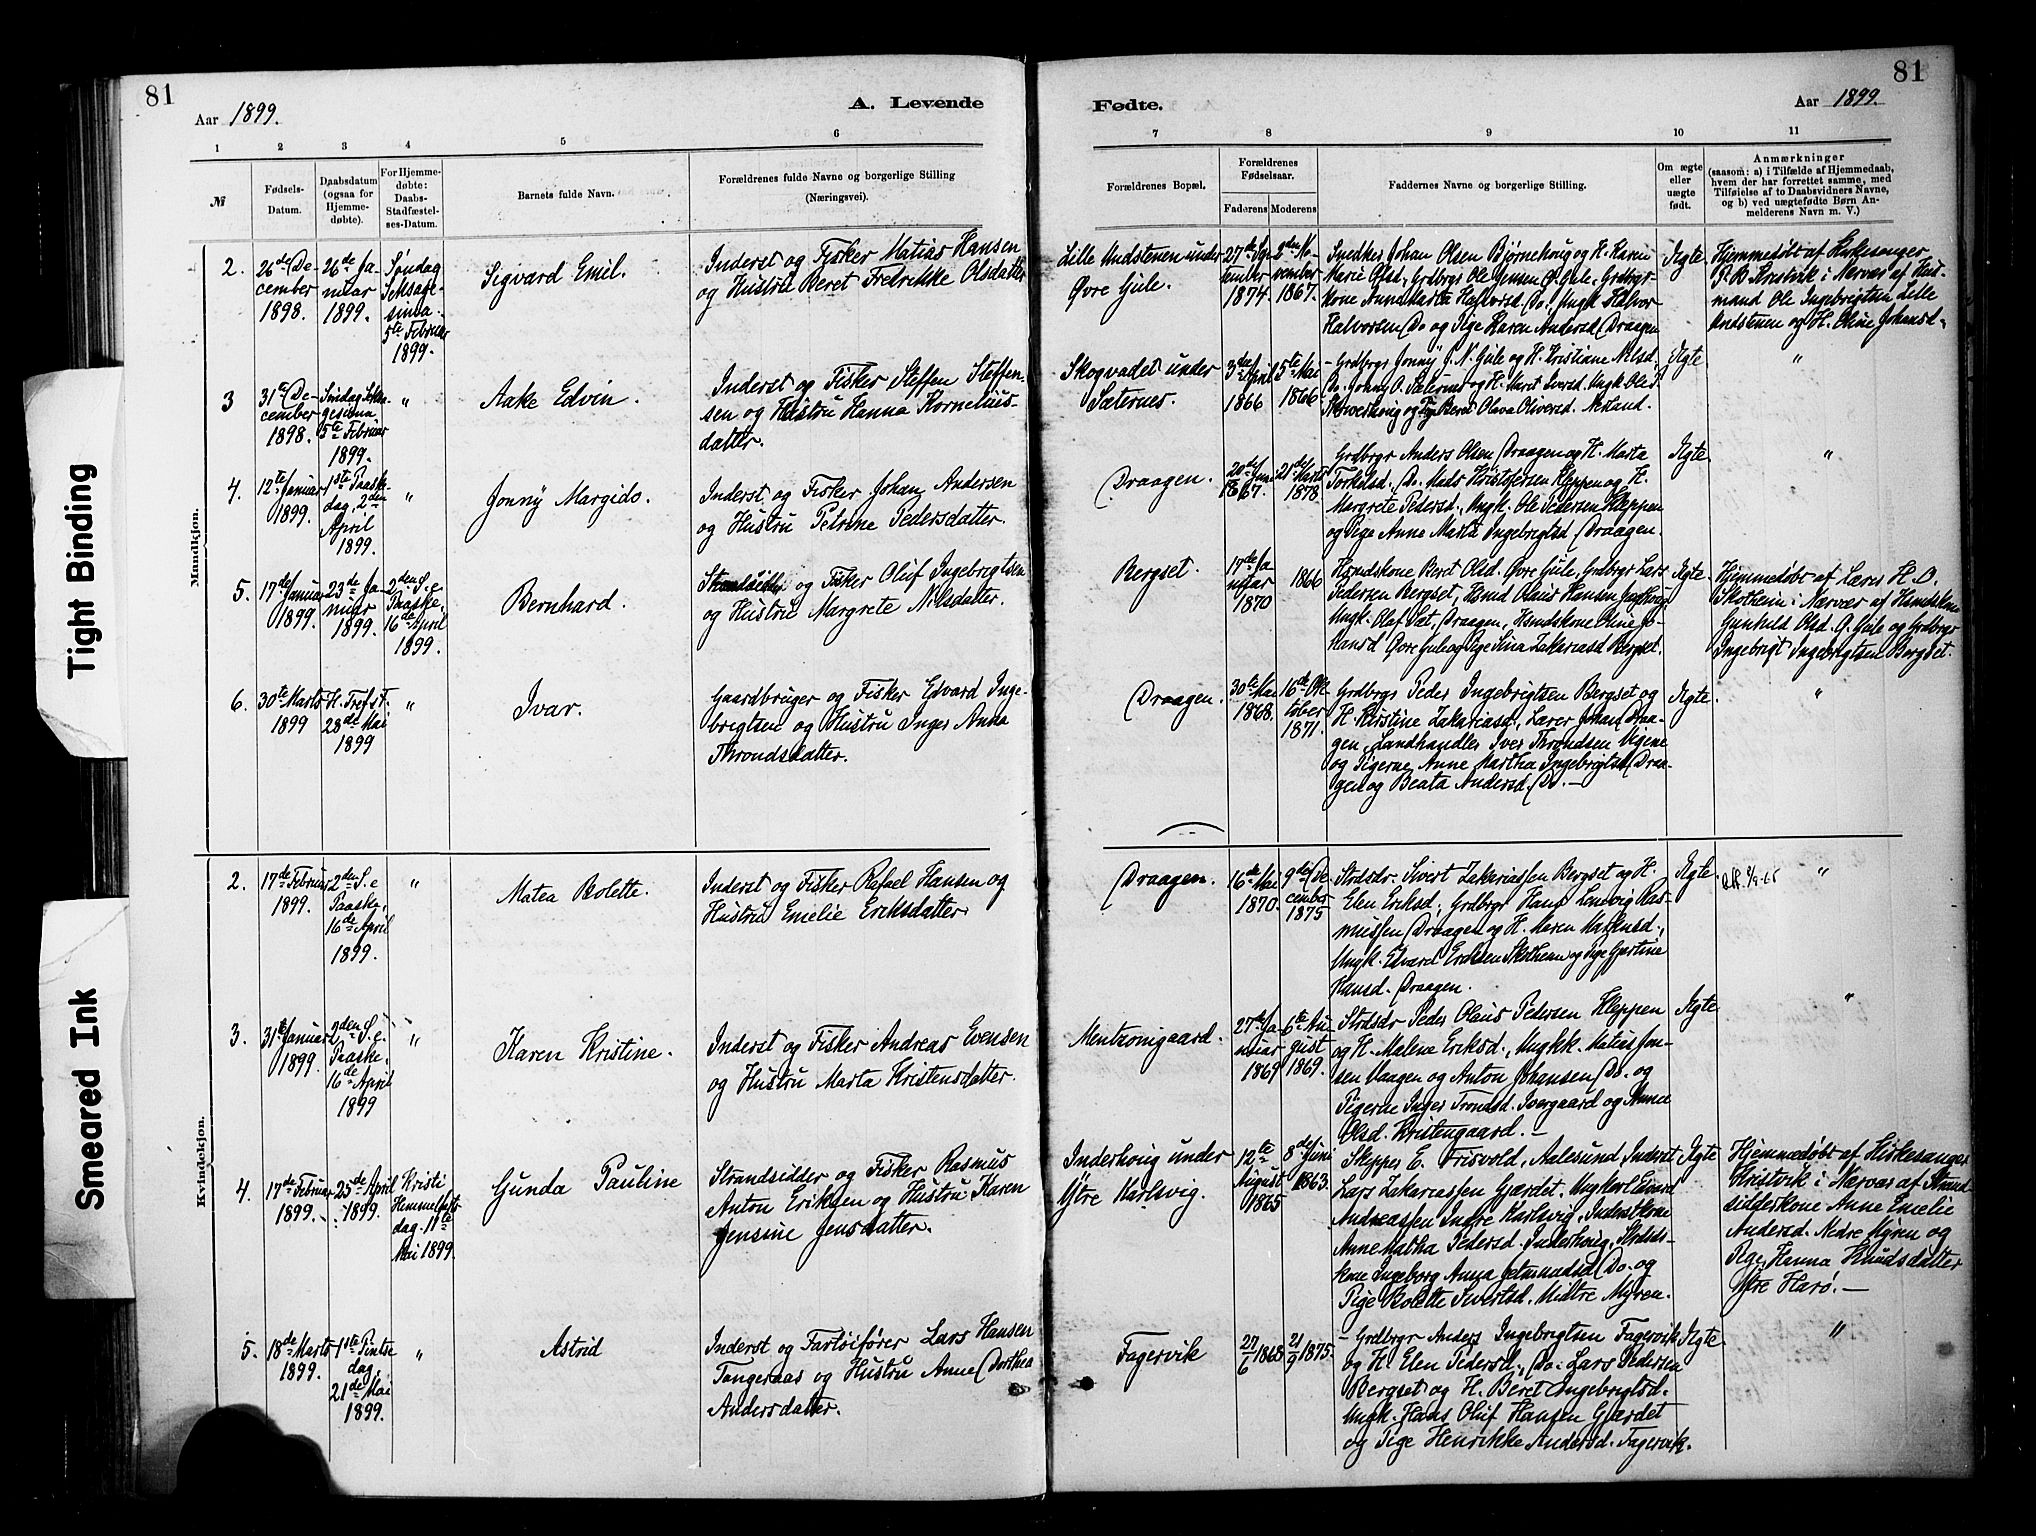 81
Aar 1899.
A. Levende
1 2 3 4 5 6
№
Fødsels-Datum.
Daabsdatum (ogsaa for Hjemmedøbte).
For Hjemmedøbte: Daabs-Stadfæstelses-Datum.
Barnets fulde Navn.
Forældrenes fulde Navne og borgerlige Stilling
(Næringsvei).
Mandkjøn.
2.
26de De-
cember
1898.
26de Ja-
nuar
1899.
Søndag
Seksage-
sima
5te Februar
1899.
Sigvard Emil.
Inderst og Fisker Matias Hansen
og Hustru Beret Fredrikke Olsdatter
3
31te De-
cember
1898.
Søndag Seksa-
gesima
5te Februar
1899.
"
Aake Edvin.
Inderst og Fisker Steffen Steffen-
sen og Hustru Hanna Kornelius-
datter.
4.
12te Januar
1899.
1ste Paaske-
dag, 2den
April
1899.
"
Jonny Margido.
Inderst og Fisker Johan Andersen
og Hustru Petrine Pedersdatter.
5.
17de Januar
1899.
23de Ja-
nuar
1899.
2den S. e.
Paaske,
16de April
1899.
Bernhard.
Strandsidder og Fisker Oluf Ingebrigtsen
og Hustru Margrete Nilsdatter.
6.
30te Marts
1899
H. Tref. F.
28de Mai
1899
"
Ivar.
Gaardbruger og Fisker Edvard Inge-
brigtsen og Hustru Inger Anna
Throndsdatter.
Kvindekjøn.
2.
17de Februar
1899.
2den S. e.
Paaske,
16de April
1899.
"
Matea Bolette.
Inderst og Fisker Rafael Hansen og
Hustru Emelie Eriksdatter
3.
31te Januar
1899.
2den S. e.
Paaske,
16de April
1899
"
Karen Kristine.
Inderst og Fisker Andreas Evensen
og Hustru Marta Kristensdatter.
4.
17de Februar
1899.
25de April
1899.
Kristi
Himmelfarts-
dag. 11te
Mai 1899.
Gunda Pauline
Strandsidder og Fisker Rasmus
Anton Eriksen og Hustru Karen
Jensine Jensdatter.
5.
18de Marts
1899.
1ste Pintse
dag,
21de Mai
1899.
"
Astrid
Inderst og Fartøifører Lars Hansen
Tangeraas og Hustru Anne Dorthea
Andersdatter.
81
Fødte.
Aar 1899.
7 8 9 10 11
Forældrenes Bopæl.
Forældrenes Fødselsaar.
Faderens Moderens
Faddernes Navne og borgerlige Stilling.
Om ægte eller uægte født.
Anmærkninger
(saasom: a) i Tilfælde af Hjemmedaab,
hvem der har forrettet samme, med
Tilføielse af to Daabsvidners Navne,
og b) ved uægtefødte Børn An-
melderens Navn m. V.)
Lille Undstenen under
Øvre Gule.
1874.
1867.
Snedker Johan Olsen Bjørnehaug og H. Karen
Marie Olsd., Grdbrgr Ole Jensen Ø. Gule, Grdbrgr-
kone Anne Marta Halvorsd. Do., Ungk. Halvor
Halvorsen Do og Pige Karen Andersd. Draagen
Ægte
Hjemmedøbt af Kirkesanger
P. B. Kristvik i Nærvær af Hus-
mand Ole Ingebrigtsen Lille
Undstenen og H. Oline Johansd.
Skogvadet under
Sæternes.
3die April
1866
5te Mai
1866
Grdbrgr Jonny J. N. Gule og H. Kristiane Nilsd.
Do. Jonny O. Sæternes og H. Maret Iversd. Ungk. Ole S.
og Pige Beret Olava Oliversd. Nesland.
Ægte
"
Draagen.
1867.
21de Marts
1878.
Grdbrgr Anders Olsen Draagen og H. Marta
Torkelsd. Do. Mads Kristofersen Kleppen og H.
Margrete Pedersd., Ungk. Ole Pedersen Kleppen
og Pige Anne Marta Ingebrigtsd. Draagen.
Ægte
"
Bergset.
17de Ja-
nuar
1870
1866
Hsmdskone Beret Olsd. Øvre Gule, Grdbrgr Lars
Pedersen Bergset, Hsmd Olaus Hansen
Ungk. Olaf Sæt, Draagen, Hsmdskone Oline Jo-
hansd Øvre Gule og Pige Sina Zakariasd Bergset.
Ægte
Hjemmedøbt af Lærer H. O.
Skotheim i Nærvær af Hsmdskone
Gunhild Olsd. Ø. Gule og Grdbrgr
Ingebrigt Ingebrigtsen Bergset.
Draagen.
30te Mai
1868.
16de Ok-
tober
1871.
Grdbrgr Peder Ingebrigtsen Bergset og
H. Kristine Zakariasd., Lærer Johan Draa-
gen, Landhandler Iver Throndsen Ugene
og Pigerne Anne Martha Ingebrigtsd. Draa-
gen og Beata Andersd. Do.
Ægte
"
Draagen.
16de Mai
1870.
9de De-
cember
1875
Strdsdr. Sivert Zakariassen Bergset og H.
Elen Eriksd., Grdbrgr Hans Lemvig Ras-
mussen Draagen og H. Maren Matkusd.,
Ungk. Edvard Eriksen Skotheim og Pige Gjertine
Hansd. Draagen.
Ægte
"
Mentzonigaard.
27de Ja-
nuar
1869
6te Au-
gust
1869.
Strdsdr Peder Olaus Pedersen Kleppen
og H. Malene Eriksd., Ungkk. Matias Jon-
sen Vaagen og Anton Johansen Do. og
Pigerne Inger Trondsd. Ivergaard og Anne
Olsd. Kristengaard.
Ægte
"
Inderhaug under
Ytre Karlsvig.
12te
August
1865
8de Juni
1863.
Skipper E. Frisvold, Aalesund, Inderst
Lars Zakariassen Gjærdet, Ungkarl Edvard
Andreassen Indre Karlsvig, Inderstkone
Anne Martha Pedersd. Inderhaug, Strdsds-
kone Ingeborg Anna Do. og
Pige Bolette Sivertsd. Midtre Myren.
Ægte
Hjemmedøbt af Kirkesanger
Kristvik i Nærvær af Strand-
sidderkone Anne Emelie
Andersd. Nedre Myren og
Pige Hanna Knudsdatter
Ytre Harø.
Fagervik
27/6 1868
21/9 1875.
Grdbrgr Anders Ingebrigtsen Fagervik
og H. Elen Pedersd., Do. Lars Pedersen
Bergset og H. Beret Ingebrigtsd.
Ungk. Hans Oluf Hansen Gjærdet
og Pige Henrikke Andersd. Fagervik.
Ægte
"
Tight Binding
Smeared Ink